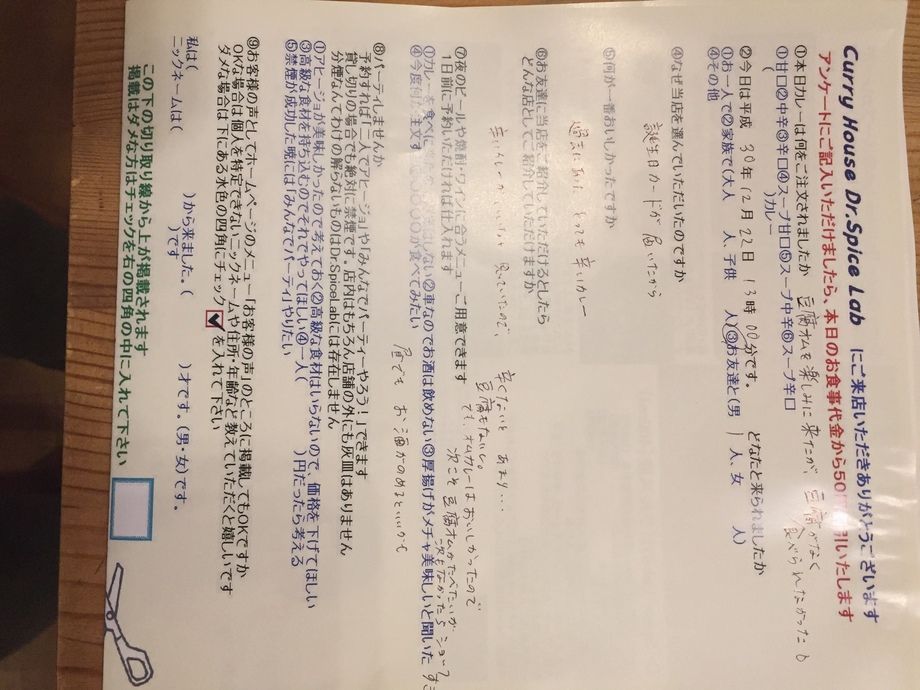 Curry House Dr.Spice Lab にご来店いただきありがとうございます
アンケートにご記入いただけましたら、本日のお食事代金から50円引いたします
①本日カレーは何をご注文されましたか 豆腐オムを楽しみに来たが 豆腐がなく
①甘口②中辛③辛口④スープ甘口⑤スープ中辛⑥スープ辛口 食べられなかった
( )カレー
②今日は平成 30年12月22日 13時00分です。 どなたと来られましたか
①お一人で②家族で(大人 人、子供 人)③お友達と(男 1 人、女 人)
④その他
④なぜ当店を選んでいただいたのですか
誕生日カードが届いたから
⑤何が一番おいしかったですか
過去にあった とっても辛いカレー
⑥お友達に当店をご紹介していただけるとしたら
どんな店としてご紹介していただけますか
辛いカレーが 思っていたので、
辛くないと あまり…
豆腐もないし。
でも、オムカレーはおいしかったので
次こそ豆腐オムがたべたいが
次もなかったら ショー?
⑦夜のビールや焼酎・ワインに合うメニューご用意できます
1日前に予約いただければ仕入れます
①カレーを食べに しない②車なのでお酒は飲めない③厚揚げがメチャ美味しいと聞いた
④今度何 注文す 〇〇〇が食べてみたい
昼でも お酒がのめるといいかも
⑧パーティしませんか
予約すれば「二人でアヒージョ」や「みんなでパーティーやろう！」できます
貸し切り場合でも絶対に禁煙です。店内はもちろん店舗の外にも灰皿はありません
分煙なんてわけの解らないものはDr.SpiceLabには存在しません
①アヒージョが美味しかったので考えておく②高級な食材はいらないので、価格を下げてほしい
③高級な食材を持ち込むのでそれでやってほしい④一人( )円だったら考える
⑤禁煙が成功した暁には「みんなでパーティ」やりたい
⑨お客様の声としてホームページのメニュー「お客様の声」のところに掲載してもOKですか
OKな場合は個人を特定できないニックネームや住所・年齢など教えていただくと嬉しいです
ダメな場合は下にある水色の四角にチェック✓を入れて下さい
私は( )から来ました。( )才です。(男・女)です。
ニックネームは( )です
この下の切り取り線から上が掲載されます
掲載はダメな方はチェックを右の四角の中に入れて下さい